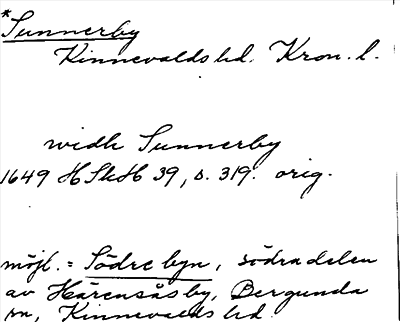 *Sunnerby
Kinnevalds hd. Kron. l.
widh Sunnerby
1649 HSkH 39, s. 319. orig.
möjl. = Södre byn, södra delen
av Härensås by, Bergunda
sn, Kinnevalds hd.